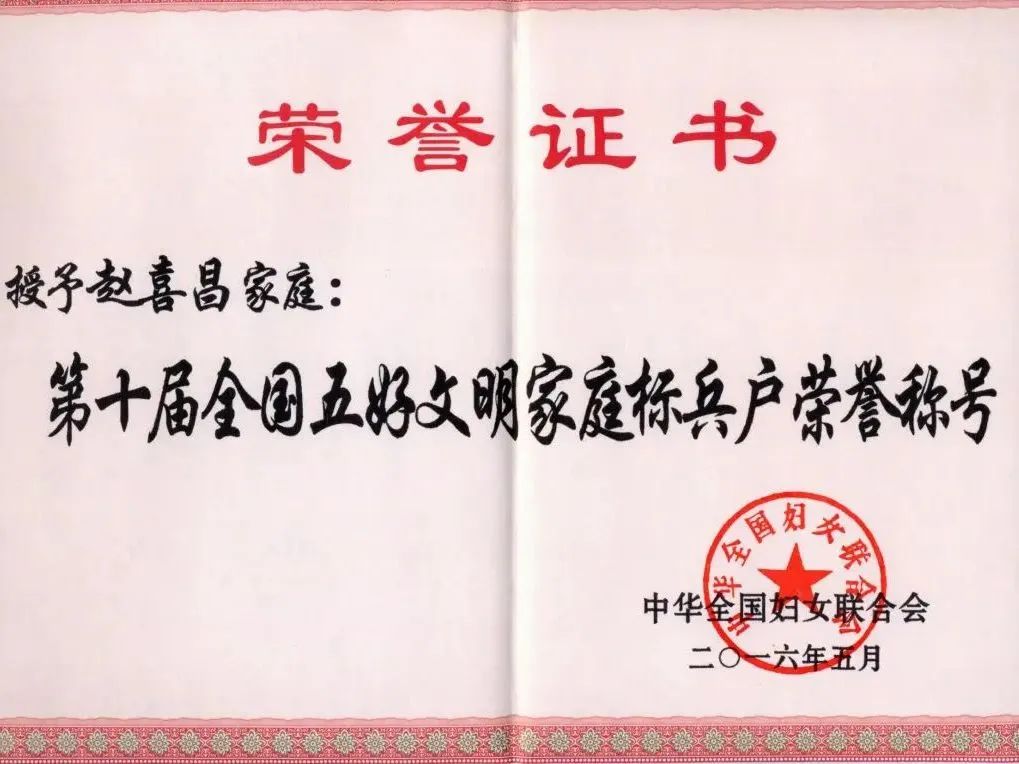 荣誉证书
授予赵喜昌家庭：
第十届全国五好文明家庭标兵户荣誉称号
中华全国妇女联合会
中华全国妇女联合会
二〇一六年五月